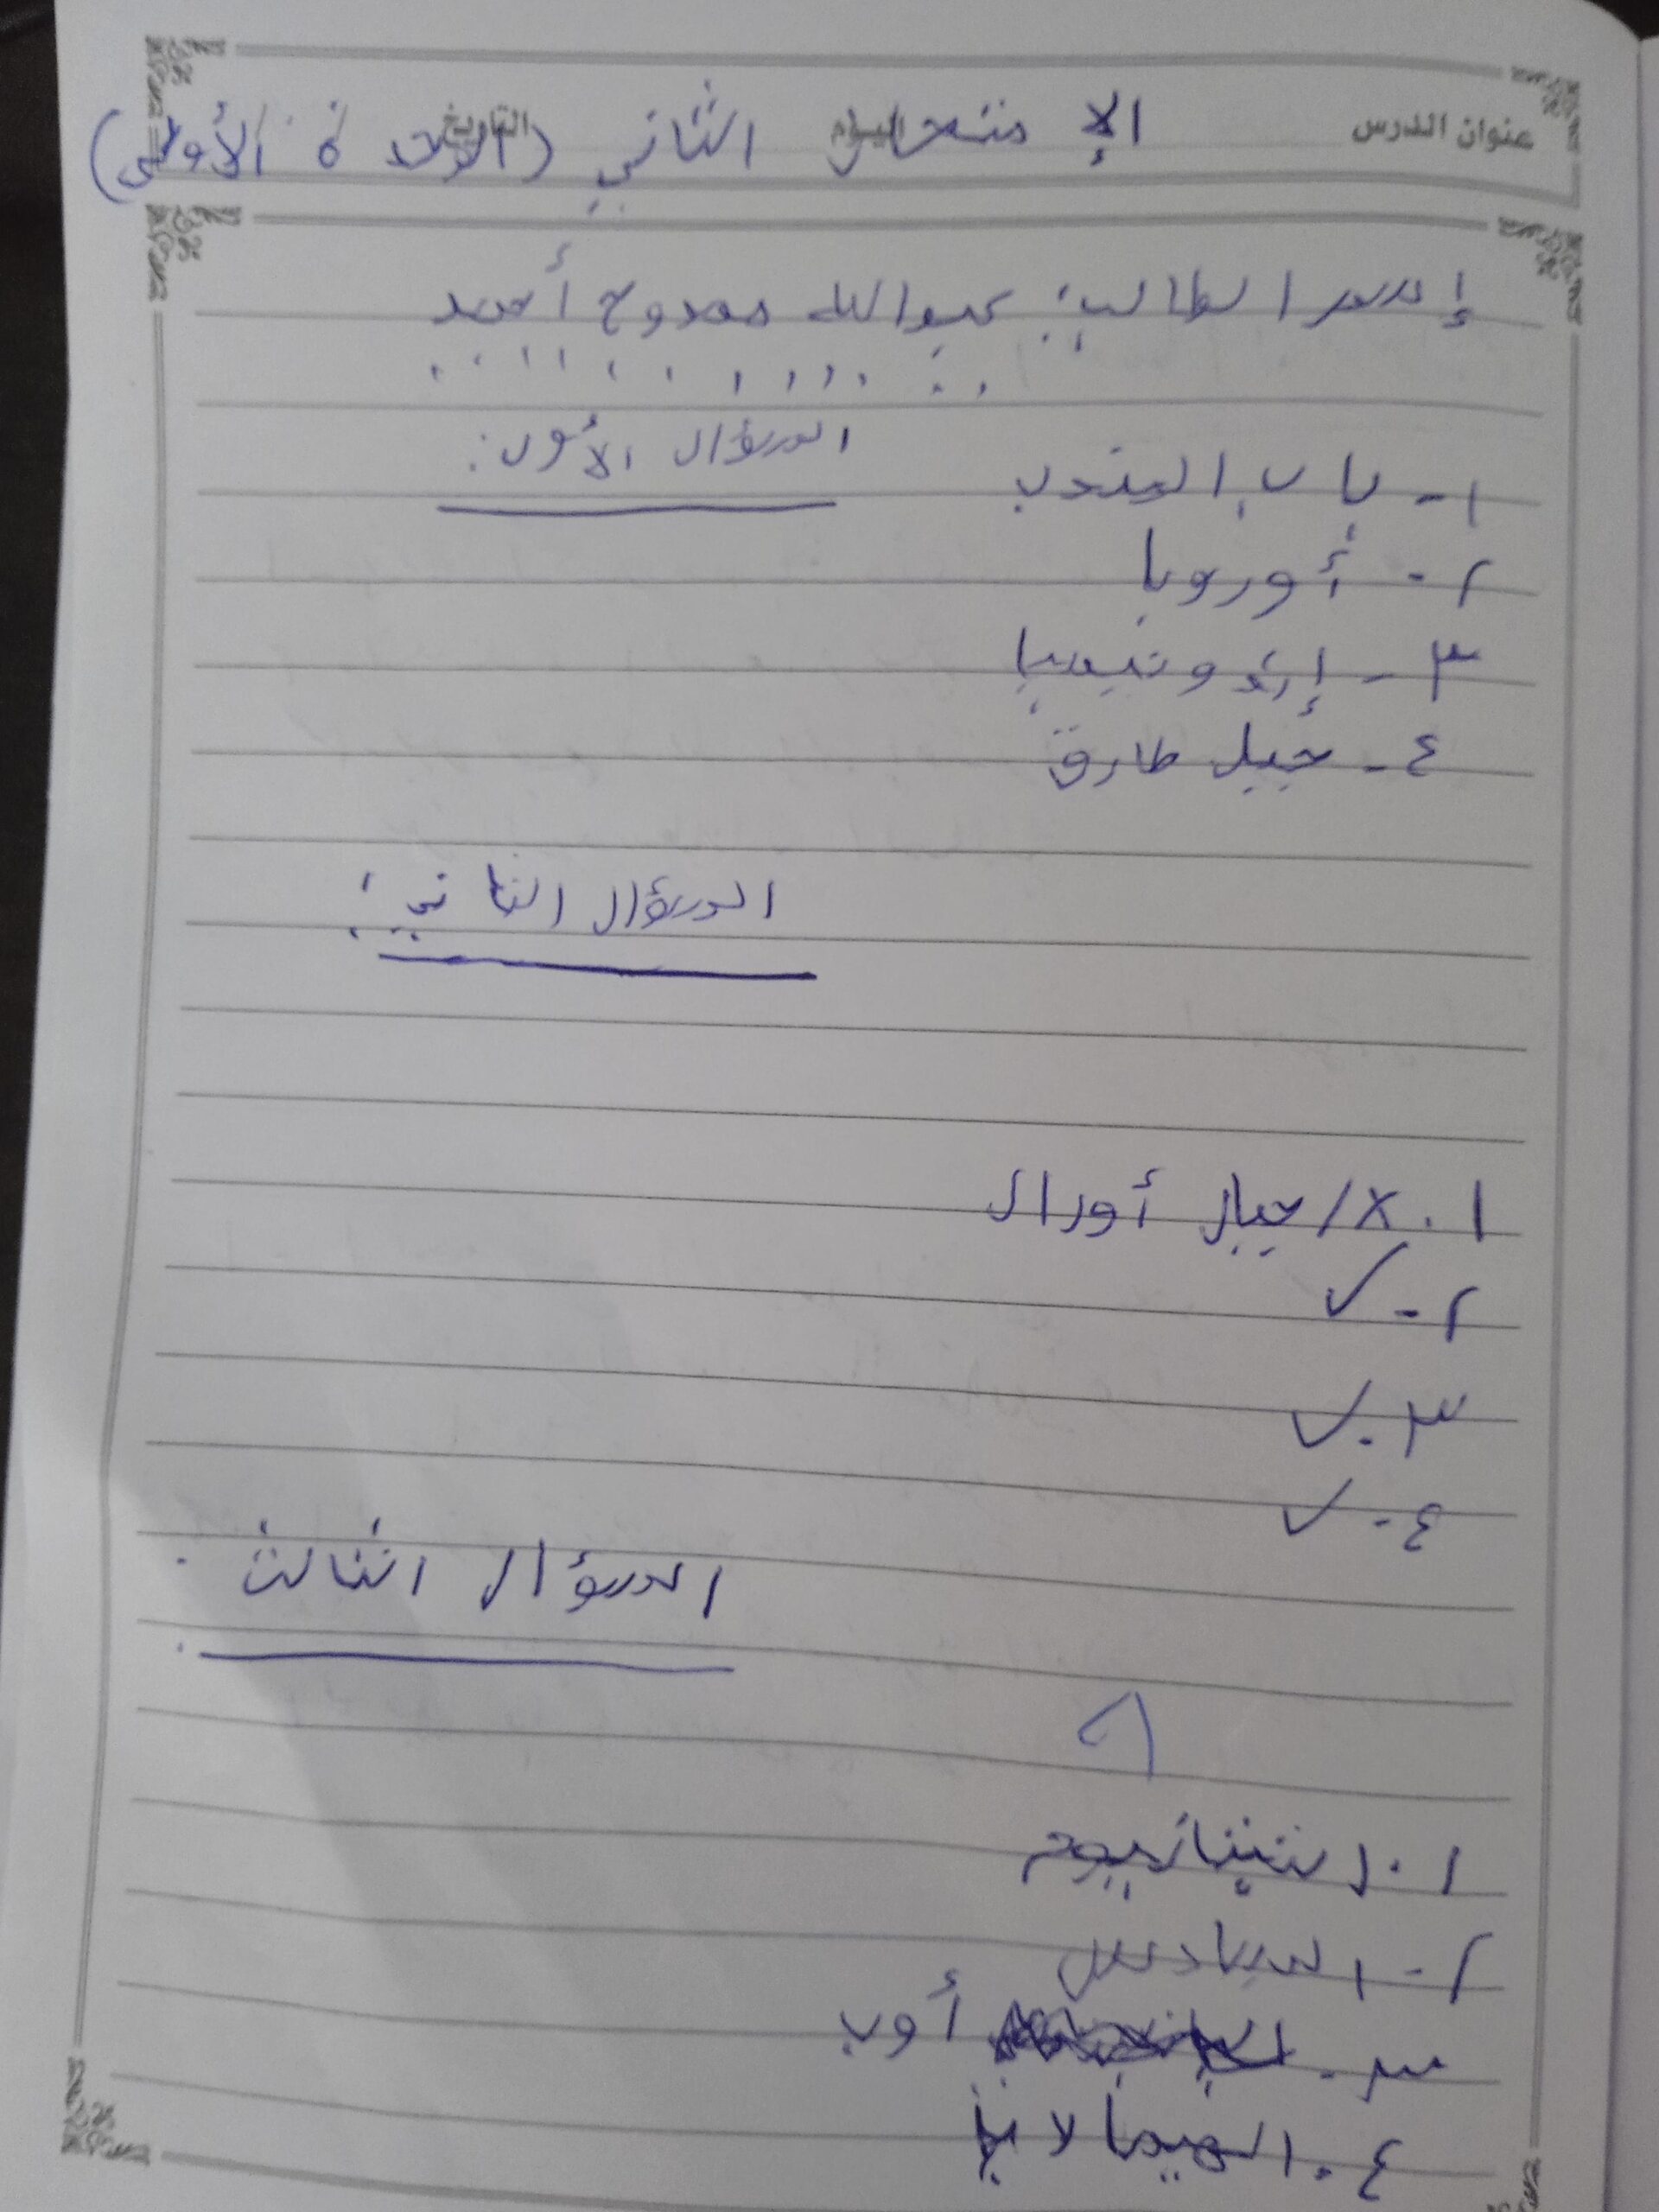 عنوان الدرس اليوم التاريخ
الإ متحان الثاني (الوحدة الأولى)
إسم الطالب: عبدالله ممدوح أحمد
السؤال الأول:
١- باب المندب
٢- أوروبا
٣- إندونيسيا
٤- جبل طارق
السؤال الثاني:
١. x/ جبال أورال
٢- ✓
٣. ✓
٤- ✓
السؤال الثالث:
أ
٢- السادس
٣. أوب
٤. الهيمالايا